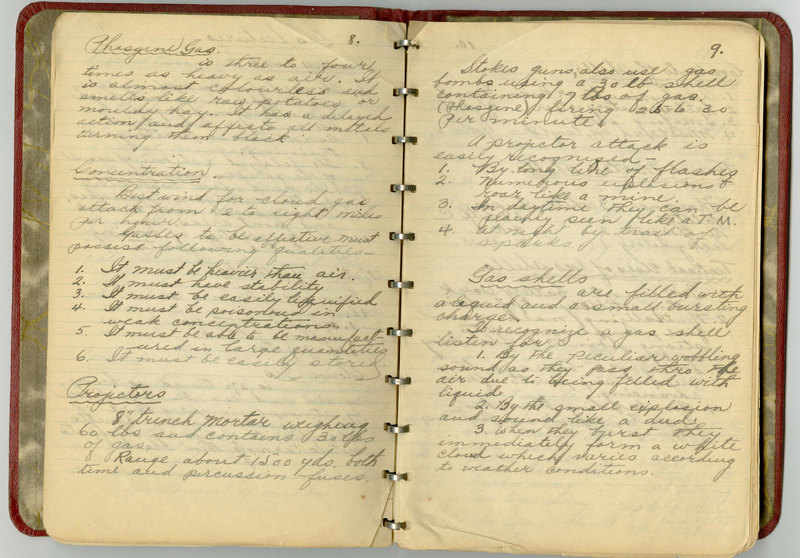 8.
Phosgine Gas.
is three to four
times as heavy as air. It
is almost colourless and
smells like raw potatoes or
mouldy hay. It has a delayed
action and affects all metals
turning them black
Concentration.
Best wind for cloud gas
attack from 2 to eight miles
per hour.
Gasses to be effective must
possess following qualities—
1. It must be heavier than air.
2. It must have stability
3. It must be easily liquified
4. It must be poisonous in
weak concentrations.
5 It must be able to be manufact
ured in large quantities
6. It must be easily stored
Projectors
8" trench mortar weighing
60 lbs and contains 30 lbs
of gas.
Range about 1500 yds. both
time and percussion fuses.
9.
Stokes guns also use gas
bombs using a 30 lb shell
containing 7 lbs of gas.
(Phosgine) firing 25 to 30
per minute.
A projector attack is
easily recognised—
1. By long line of flashes
2. Numerous explosions &
roar like a mine.
3. In daytime they can be
plainly seen like a T.M.
4. at night by trail of
sparks.
Gas shells
are filled with
a liquid and a small bursting
charge.
To recognize a gas shell
listen for
1. By the peculiar wobbling
sound as they pass thro the
air due to being filled with
liquid
2. By the small explosion
and sound like a dud.
3. When they burst they
immediately form a white
cloud which varies according
to weather conditions.